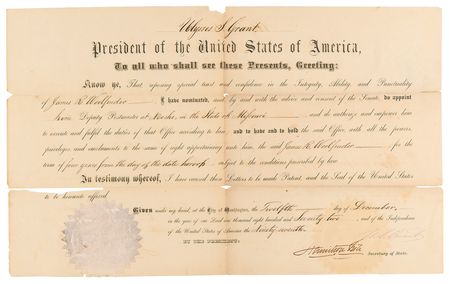 Ulysses S. Grant
President of the United States of America,
To all who shall see these Presents, Greeting:
Know ye, That reposing special trust and confidence in the Integrity, Ability, and Punctuality
of James H. I have nominated, and by and with the advice and consent of the Senate, do appoint
him Deputy Postmaster at in the State of and do authorize and empower him
to execute and fulfil the duties of that Office according to law; and to have and to hold the said Office, with all the powers,
privileges and emoluments to the same of right appertaining unto him, the said James H. for the
term of four years from the day of the date hereof, subject to the conditions prescribed by law.
In testimony whereof, I have caused these Letters to be made Patent, and the Seal of the United States
to be hereunto affixed.
Given under my hand, at the City of Washington, the Twelfth day of December,
in the year of our Lord one thousand eight hundred and Seventy two, and of the Independence
of the United States of America the Ninety seventh.
BY THE PRESIDENT:
Hamilton Fish
Secretary of State.